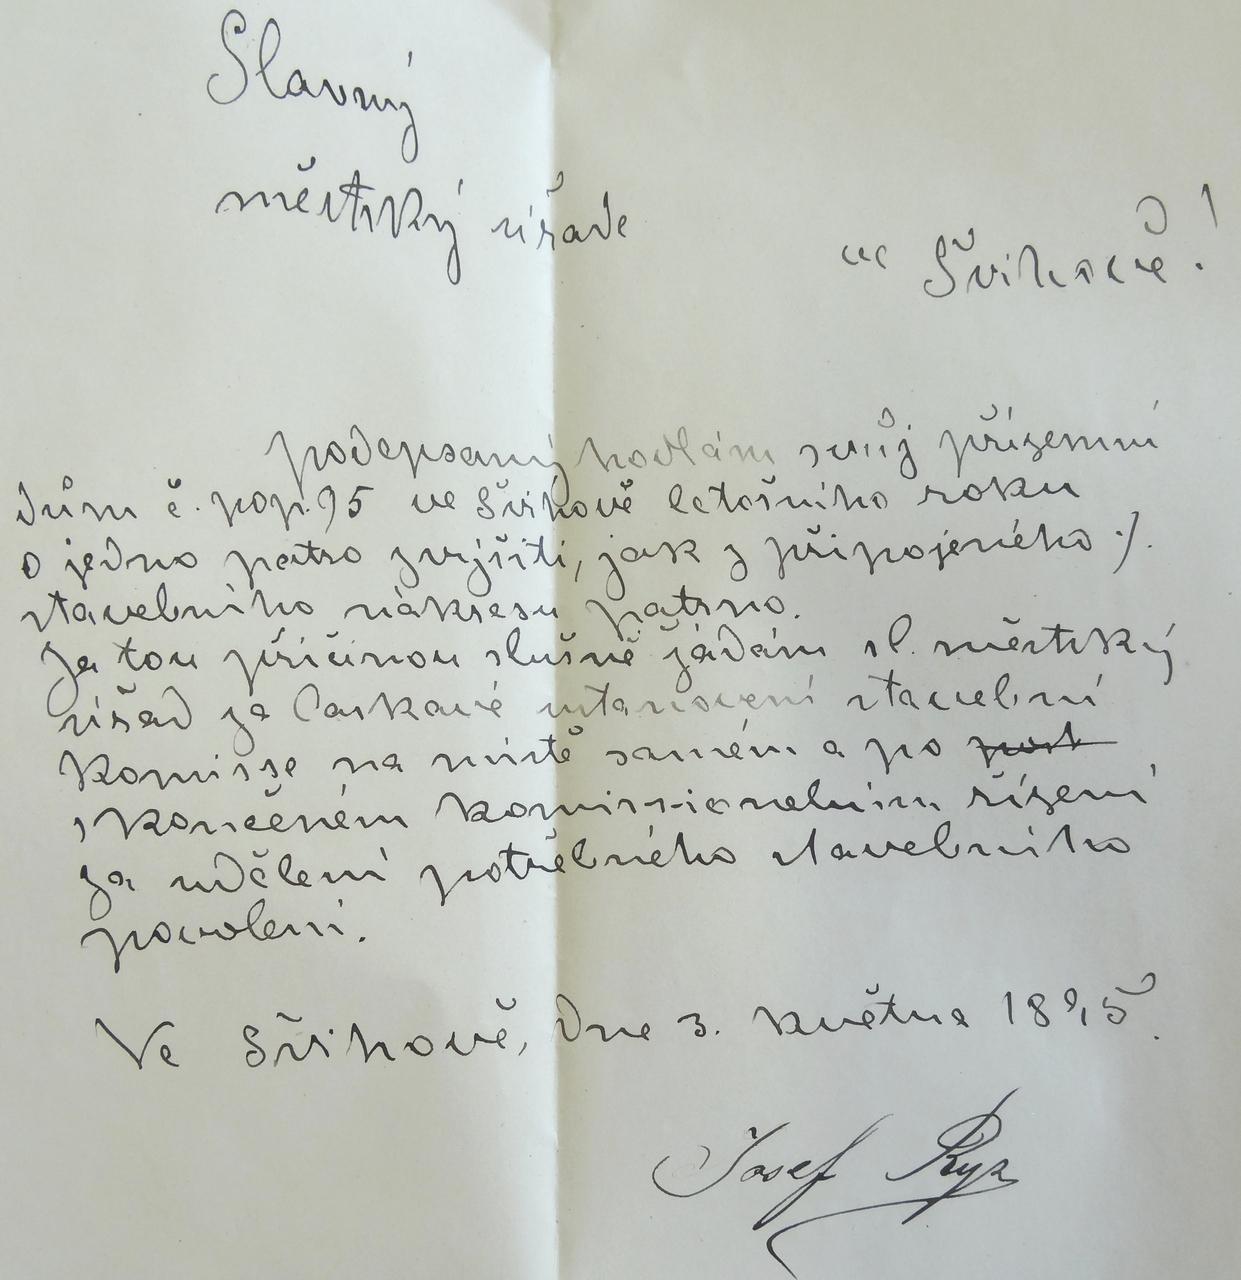 Slavný
městský úřade
ve Švihově!
podepsaný hodlám svůj přízemní
dům č. pop. 95 ve Švihově letošního roku
o jedno patro zvýšiti, jak z připojeného ·/.
stavebního nákresu patrno.
Za tou příčinou slušně žádám sl. městský
úřad za laskavé ustanovení stavební
komisse na místě samém a po
skončeném komissionelním řízení
za udělení potřebného stavebního
povolení.
Ve Švihově, dne 3. května 1895.
Josef